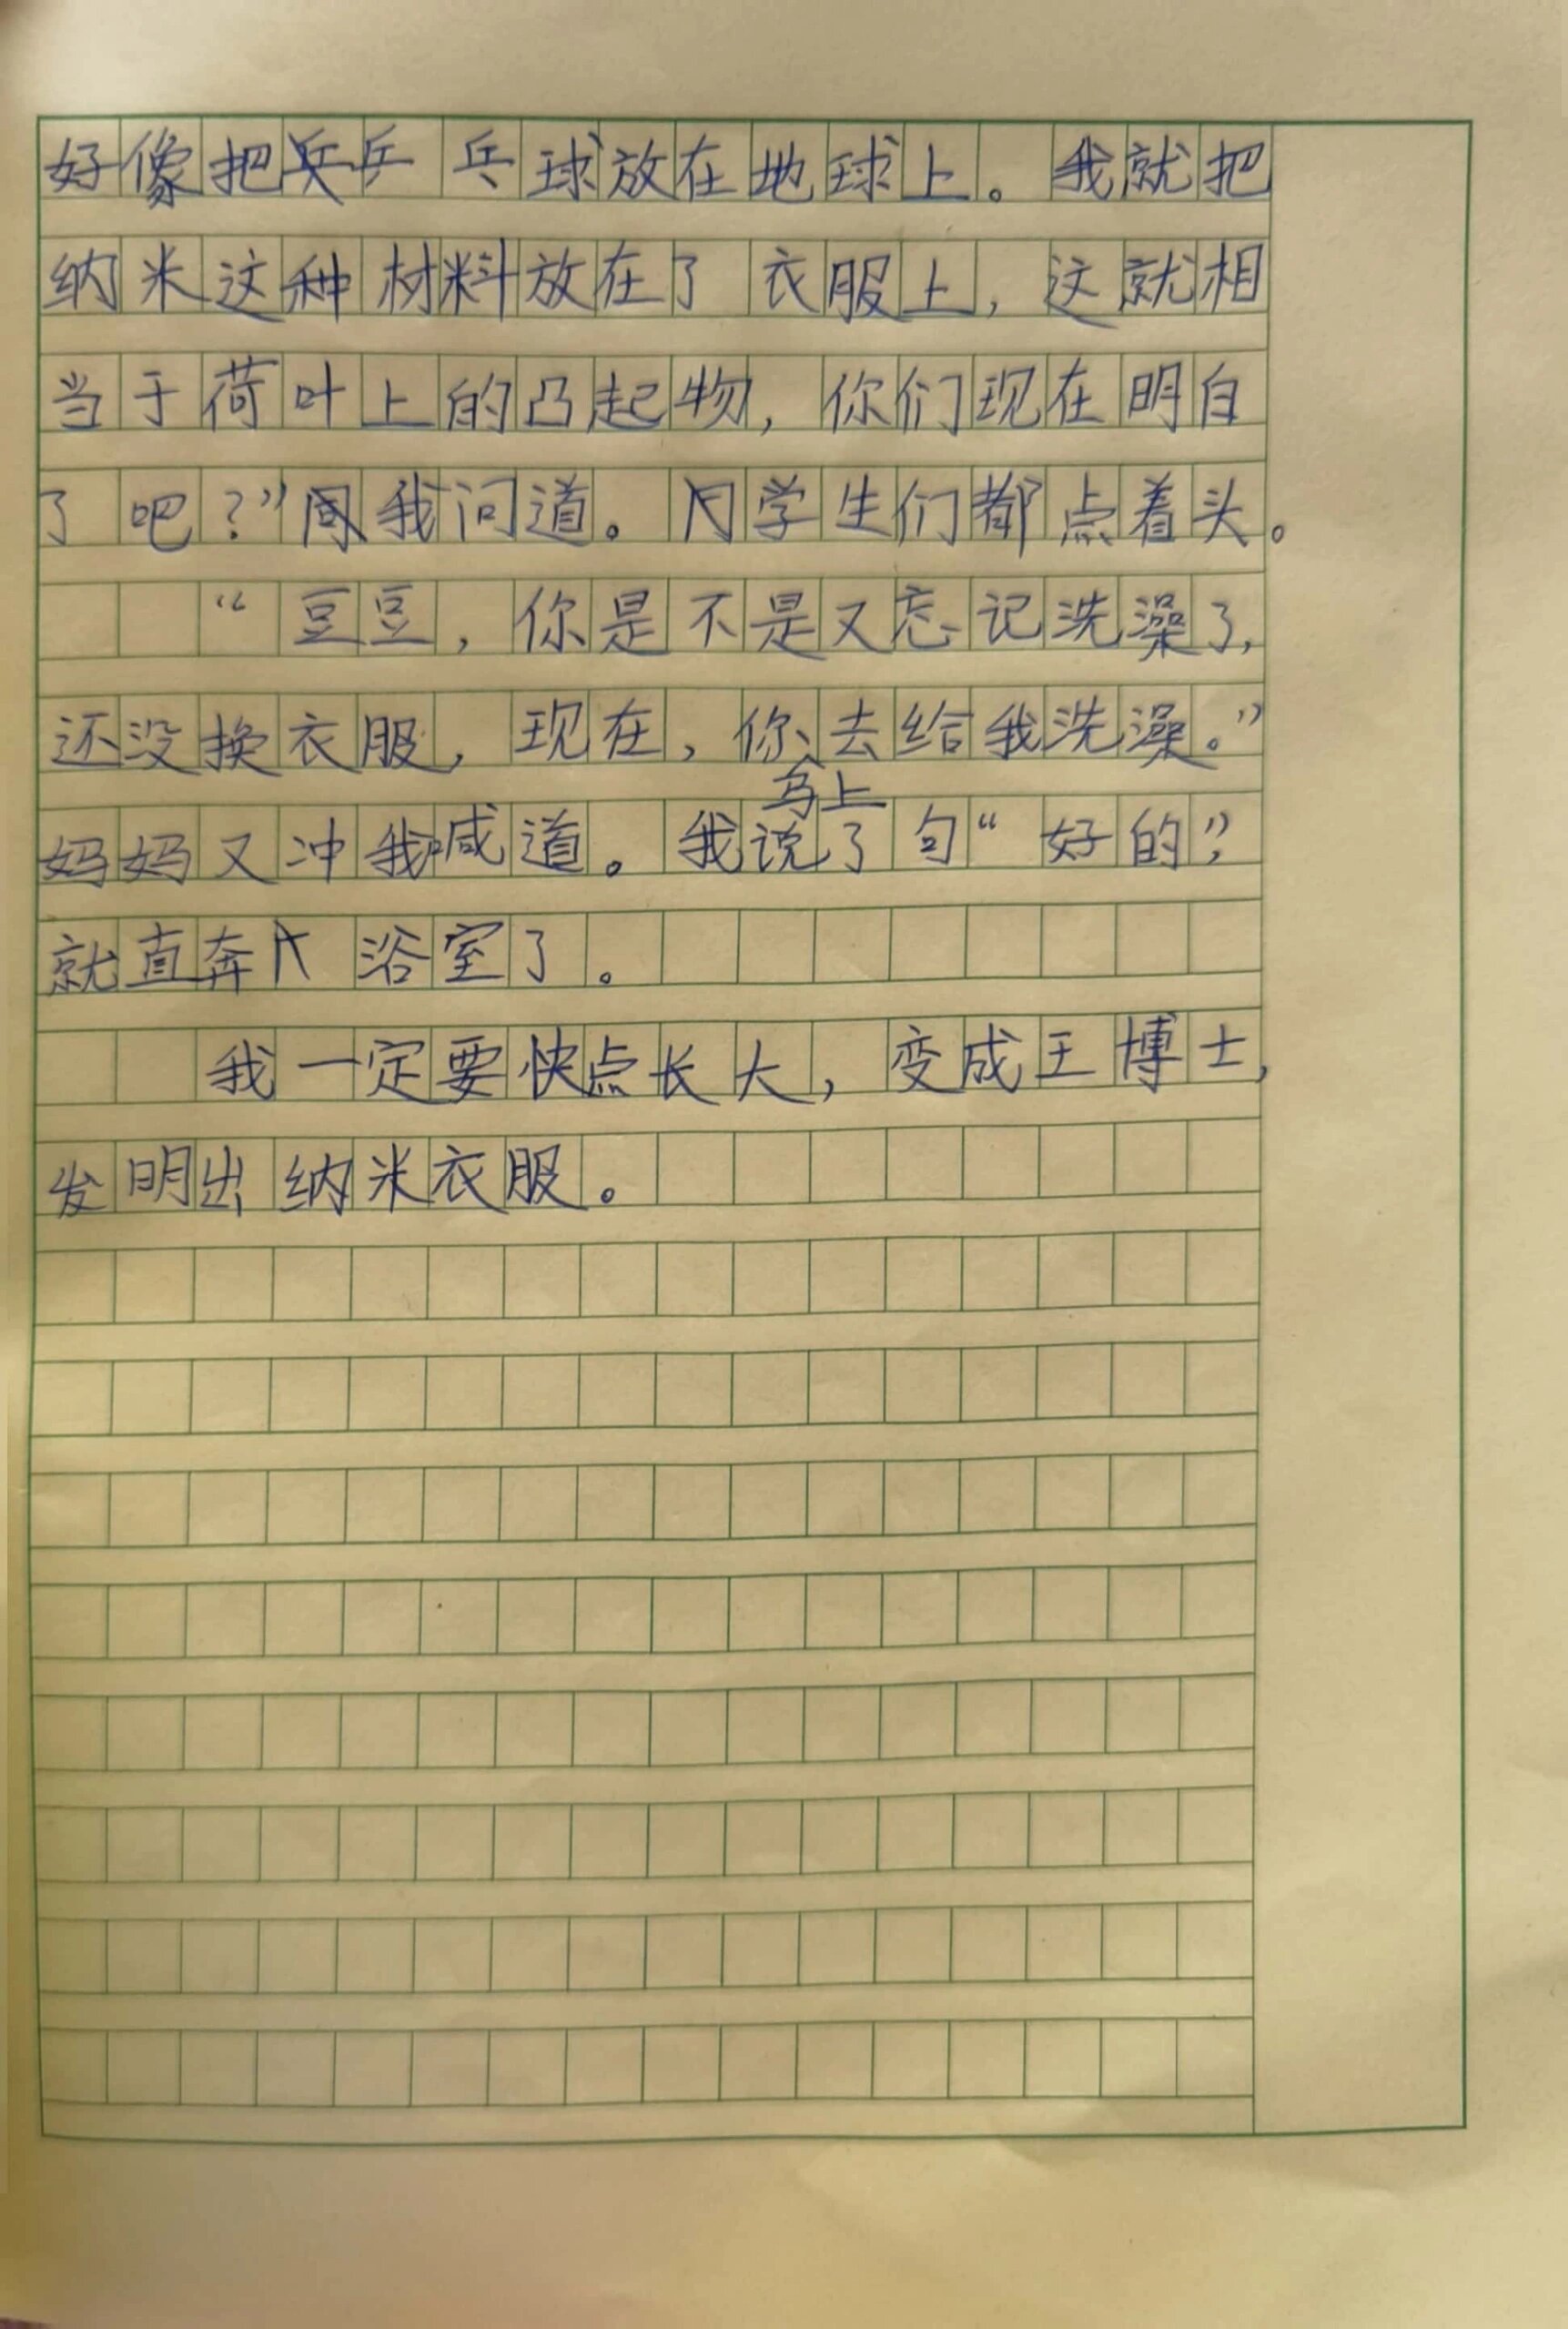 好像把乒乓球放在地球上。我就把
纳米这种材料放在了衣服上，这就相
当于荷叶上的凸起物，你们现在明白
了吧？”我问道。学生们都点着头。
“豆豆，你是不是又忘记洗澡了，
还没换衣服，现在，你马上去给我洗澡。”
妈妈又冲我喊道。我说了句“好的”，
就直奔浴室了。
我一定要快点长大，变成王博士，
发明出纳米衣服。